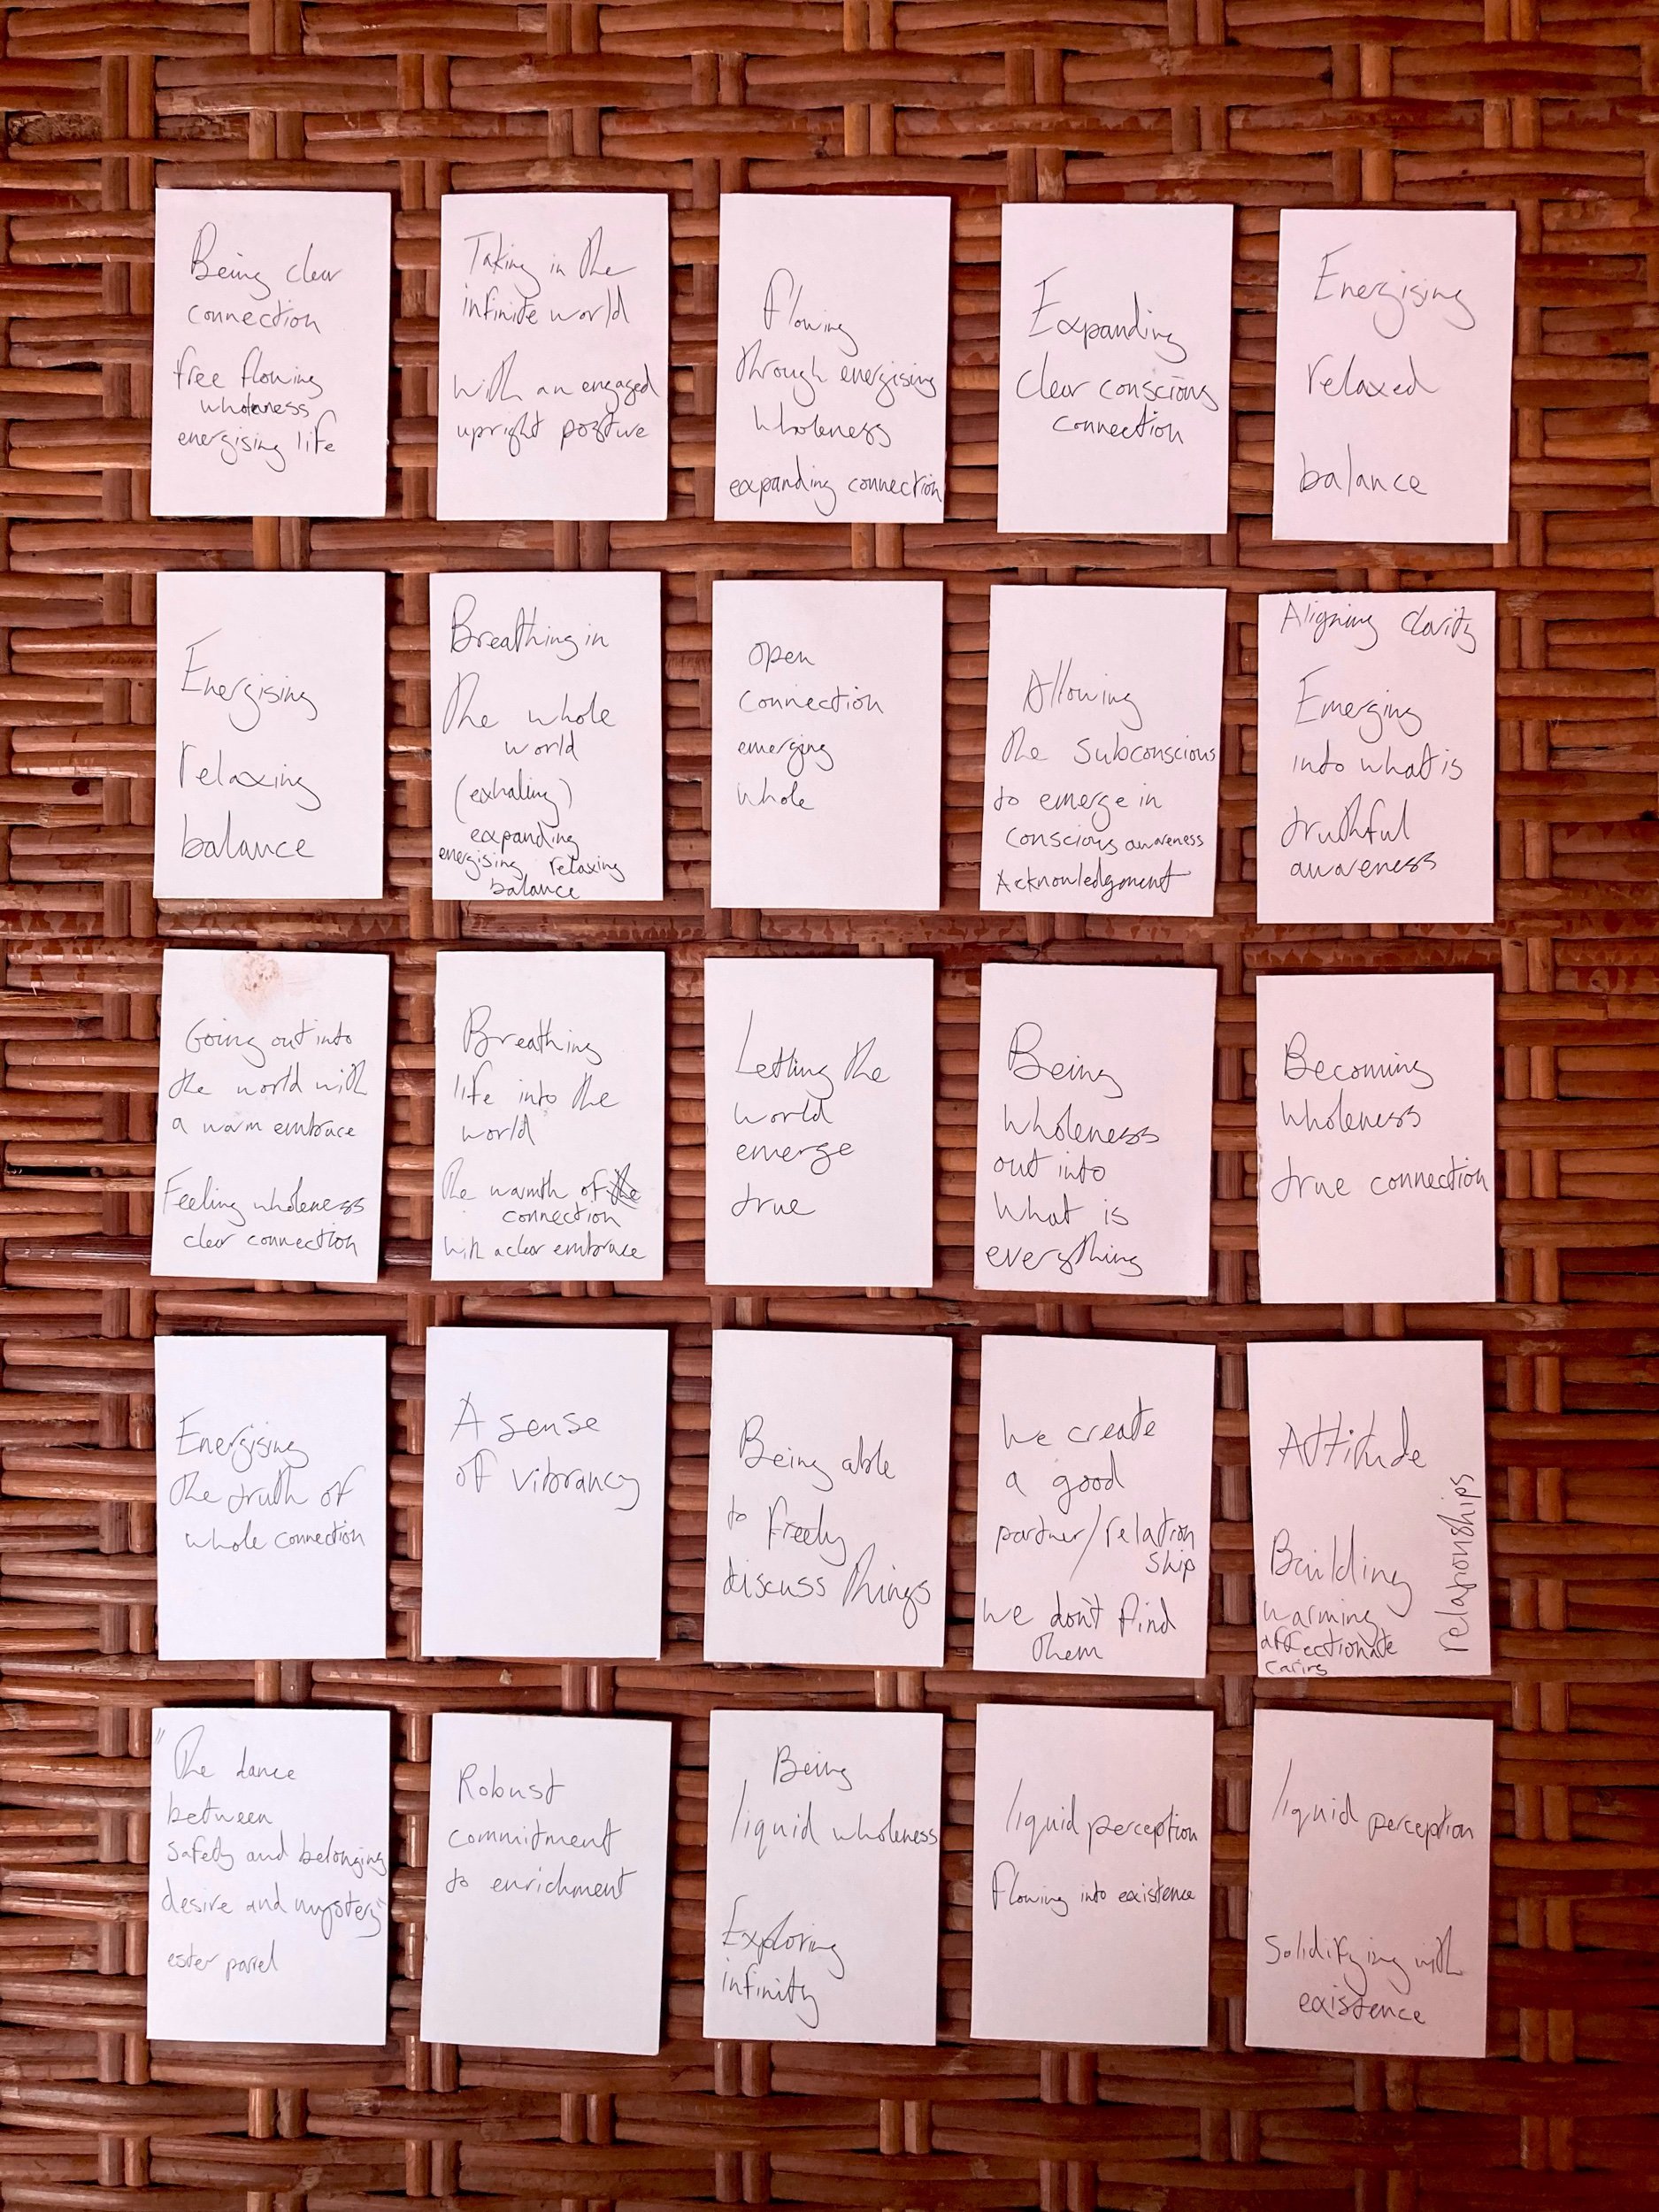 Being clear
connection
free flowing
wholeness
energising life
Taking in the
infinite world
with an engaged
upright positive
flowing
through energising
wholeness
expanding connection
Expanding
clear conscious
connection
Energising
relaxed
balance
Energising
relaxing
balance
Breathing in
the whole
world
(exhaling)
expanding
energising relaxing
balance
open
connection
emerging
whole
Allowing
the subconscious
to emerge in
conscious awareness
Acknowledgement
Aligning clarity
Emerging
into what is
truthful
awareness
Going out into
the world with
a warm embrace
Feeling wholeness
clear connection
Breathing
life into the
world
The warmth of the
connection
with a clear embrace
Letting the
world
emerge
true
Being
wholeness
out into
what is
everything
Becoming
wholeness
true connection
Energising
the truth of
whole connection
A sense
of vibrancy
Being able
to freely
discuss things
we create
a good
partner/relation
ship
we don't find
them
Attitude
Building
warming
affectionate
caring
relationships
"The dance
between
safety and belonging
desire and mystery"
ester parel
Robust
commitment
to enrichment
Being
liquid wholeness
Exploring
infinity
liquid perception
flowing into existence
liquid perception
solidifying with
existence